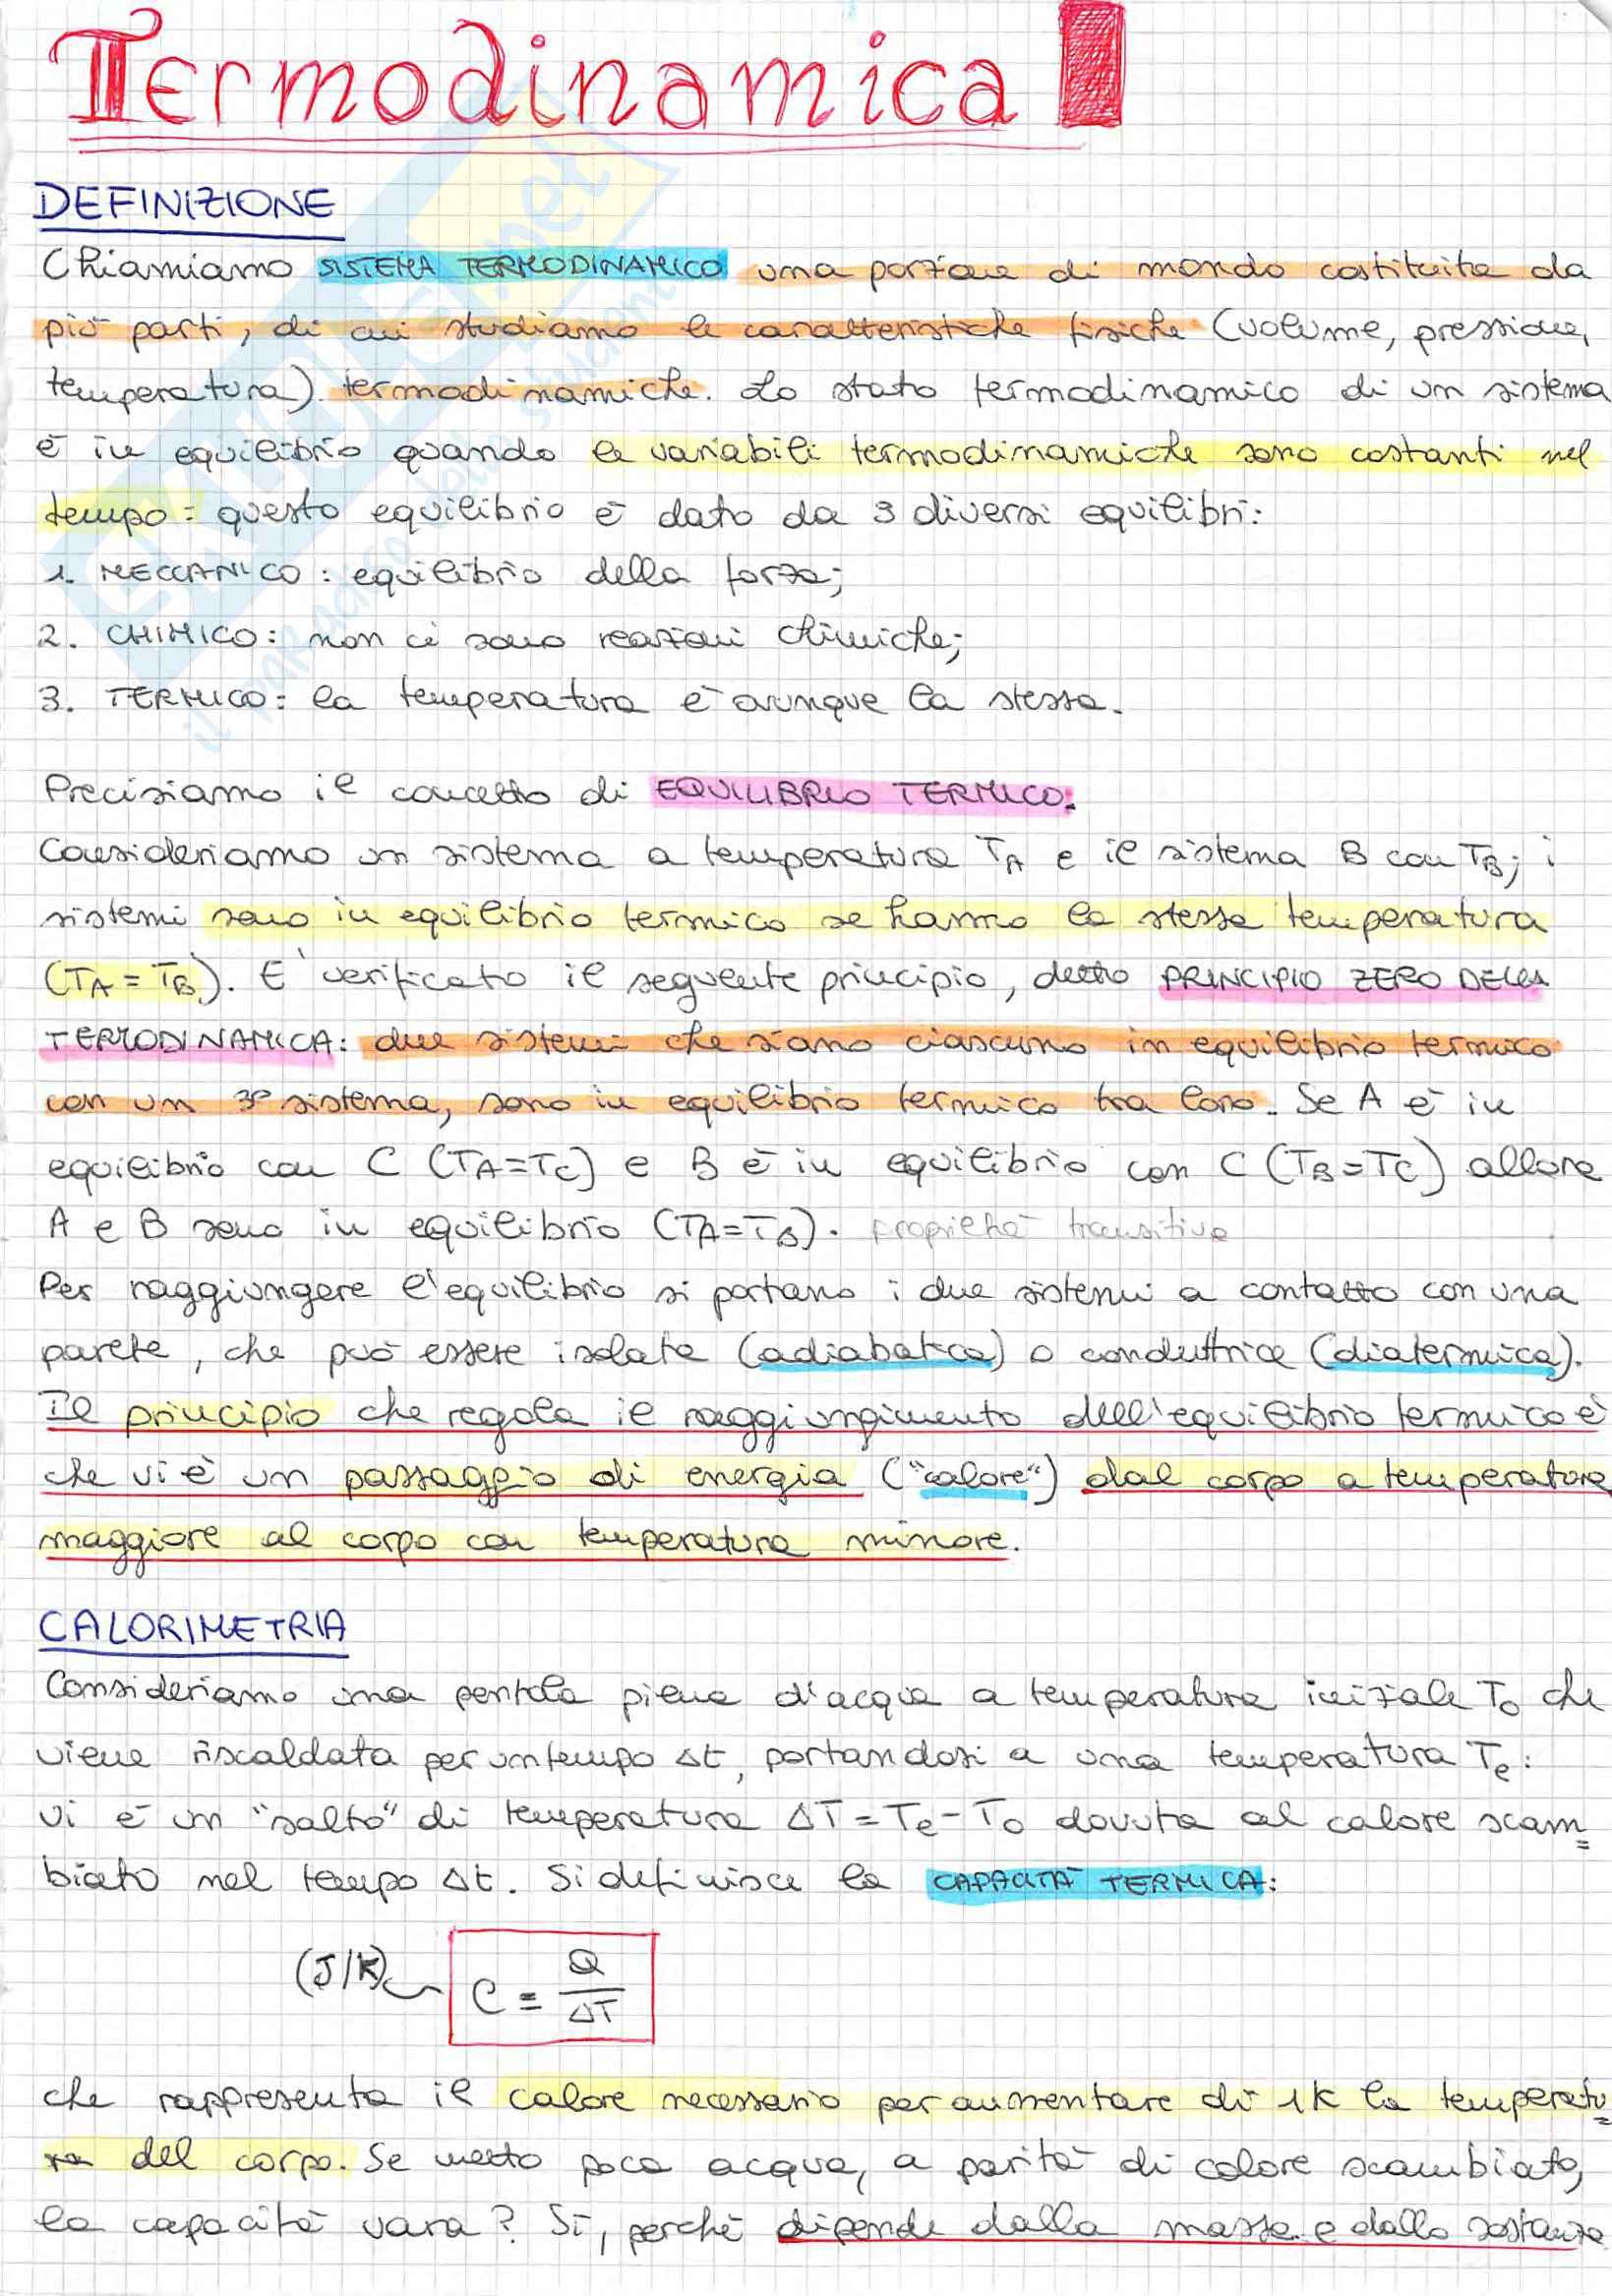 Termodinamica
DEFINIZIONE
Chiamiamo SISTEMA TERMODINAMICO una porzione di mondo costituita da
più parti, di cui studiamo le caratteristiche fisiche (volume, pressione,
temperatura) termodinamiche. Lo stato termodinamico di un sistema
è in equilibrio quando le variabili termodinamiche sono costanti nel
tempo: questo equilibrio è dato da 3 diversi equilibri:
1. MECCANICO: equilibrio della forza;
2. CHIMICO: non ci sono reazioni chimiche;
3. TERMICO: la temperatura è ovunque la stessa.
Precisiamo il concetto di EQUILIBRIO TERMICO.
Consideriamo un sistema a temperatura TA e il sistema B con TB; i
sistemi sono in equilibrio termico se hanno la stessa temperatura
(TA = TB). E' verificato il seguente principio, detto PRINCIPIO ZERO DELLA
TERMODINAMICA: due sistemi che siano ciascuno in equilibrio termico
con un 3° sistema, sono in equilibrio termico tra loro. Se A è in
equilibrio con C (TA=TC) e B è in equilibrio con C (TB=TC) allora
A e B sono in equilibrio (TA=TB). proprietà transitiva
Per raggiungere l'equilibrio si portano i due sistemi a contatto con una
parete, che può essere isolata (adiabatica) o conduttrice (diatermica).
Il principio che regola il raggiungimento dell'equilibrio termico è
che vi è un passaggio di energia ("calore") dal corpo a temperatura
maggiore al corpo con temperatura minore.
CALORIMETRIA
Consideriamo una pentola piena d'acqua a temperatura iniziale T0 che
viene riscaldata per un tempo Δt, portandosi a una temperatura Te:
vi è un "salto" di temperatura ΔT = Te - T0 dovuta al calore scam=
biato nel tempo Δt. Si definisce la CAPACITÀ TERMICA:
(J/K) C = Q/ΔT
che rappresenta il calore necessario per aumentare di 1K la temperatu=
ra del corpo. Se metto poca acqua, a parità di calore scambiato,
la capacità varia? Sì, perché dipende dalla massa e dalla sostanza